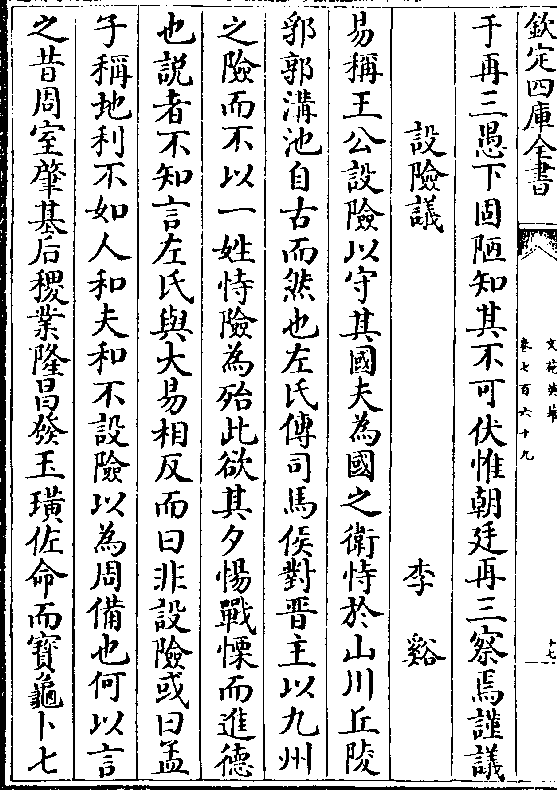 欽定四庫全書
文苑英華
卷七百六十九
十七
于再三愚下固陋知其不可伏惟朝廷再三察焉謹議
設險議
李谿
易稱王公設險以守其國夫為國之衛恃於山川丘陵
郛郭溝池自古而然也左氏傳司馬侯對晉主以九州
之險而不以一姓恃險為殆此欲其夕惕戰慄而進德
也説者不知言左氏與大易相反而曰非設險或曰孟
子稱地利不如人和夫和不設險以為周備也何以言
之昔周室肇基后稷業隆昌發玉璜佐命而寶龜卜七